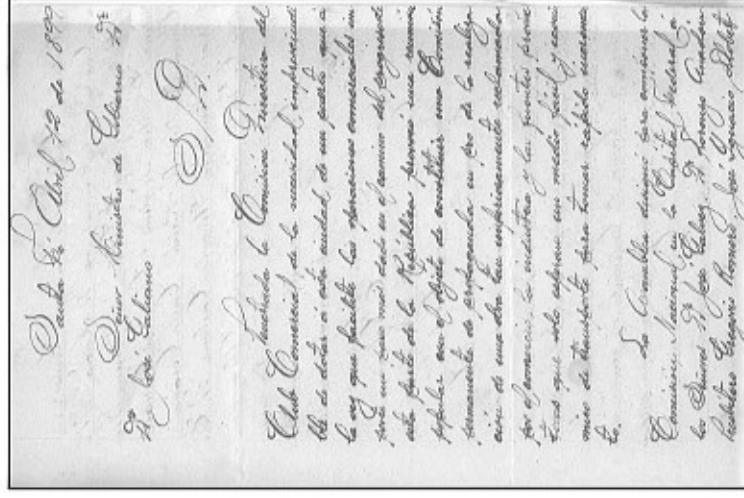 Santa Fé Abril 12 de 1899
Señor Ministro de
Dn José Galiano
S/D.
Penetrada la Comisión Directiva del
Club Comercial de la necesidad imprescindi
ble de dotar á esta ciudad de un puerto que á
la vez que facilite las operaciones comerciales im
porte un paso mas dado en el camino del progreso de
esta parte de la República provocó una reunión
popular con el objeto de constituir una Comisión
permanente de propaganda en pro de la realiza
ción de una obra tan imperiosamente reclamada
por el comercio, la industria y las fuentes produc
toras que solo esperan un medio fácil y econó
mico de transporte para tomar rápido incremen
to.
La Asamblea designó para componer la
Comisión Nacional en la Capital Federal á
los Señores Dr José Galvez, Dr Lorenzo
Presbítero Gregorio Romero, José Ygnacio